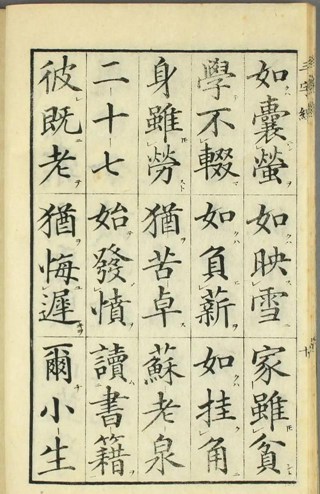 三字經
如囊螢如映雪家雖貧
學不輟如負薪如挂角
身雖勞猶苦卓蘇老泉
二十七始發憤讀書籍
彼既老猶悔遲爾小生